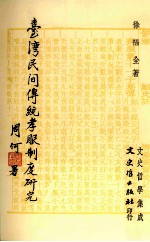 徐福全著
臺灣民間傳統孝服制度研究
周何署
文史哲學集成
文史哲出版社印行